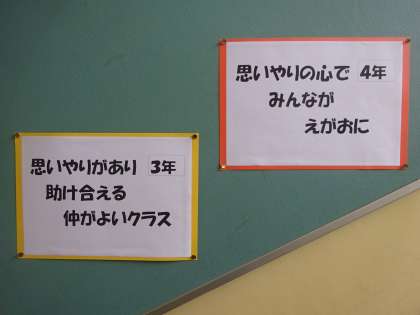 思いやりの心で 4年
みんなが
えがおに
思いやりがあり 3年
助け合える
仲がよいクラス